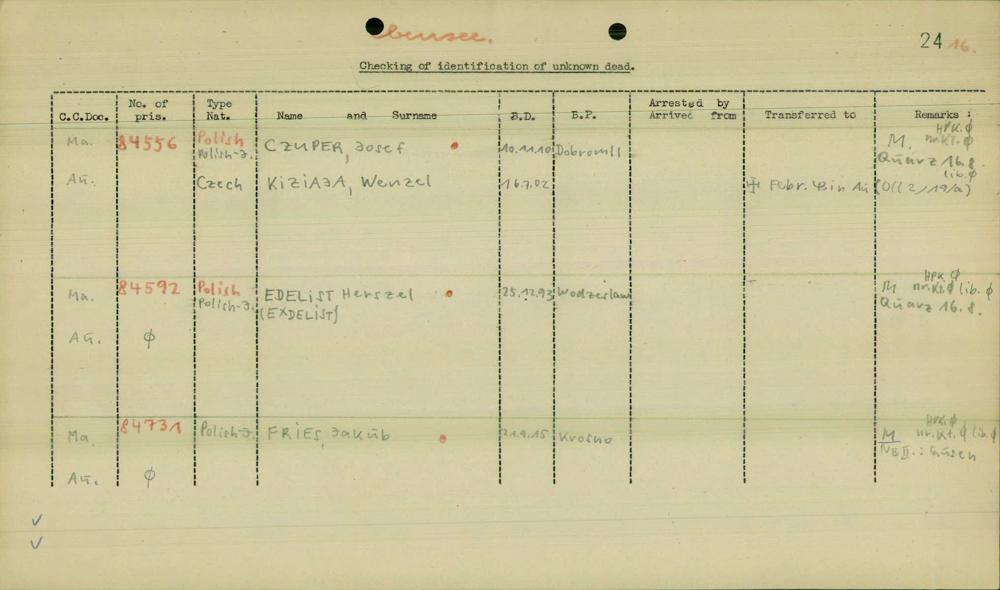 Ebensee.
24 16.
Checking of identification of unknown dead.
C.C.Doc. No. of pris. Type Nat. Name and Surname B.D. B.P. Arrested by Arrived from Transferred to Remarks :
Ma. 84556 Polish CZUPER, Josef 10.11.10 Dobromil M. HPK. φ
Polish-J. nr.Kt. φ
Quarz 16.8.
lib. φ
Au. Czech KIZIAJA, Wenzel 16.7.02 Febr. 43 in Au (Oll 2/19/a)
Ma. 84592 Polish EDELIST Herszel 25.12.93 Wodzeslaw M HPK. φ
Polish-J. (EXDELIST) nr.Kt. φ lib. φ
Quarz 16.8.
Au. φ
Ma. 84731 Polish-J. FRIES, Jakub 21.9.15 Krosno M HPK. φ
nr.Kt. φ lib. φ
NB II.: Gusen
Au. φ